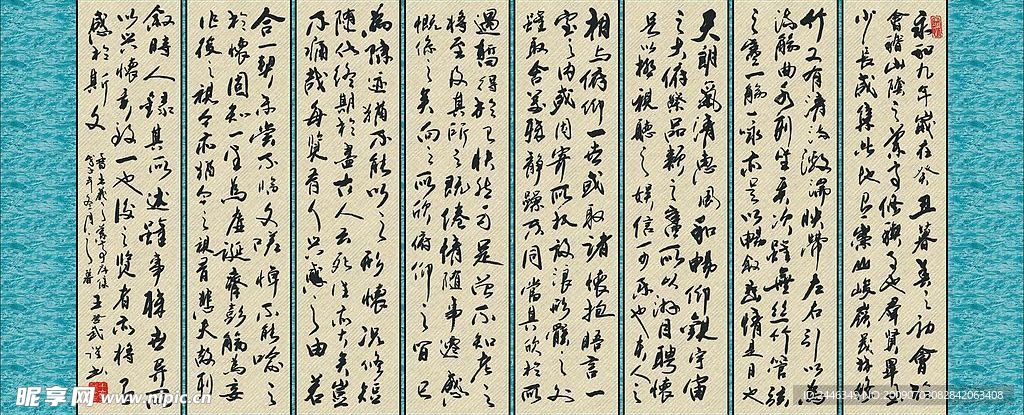 永和九年歲在癸丑暮春之初會於
會稽山陰之蘭亭修禊事也群賢畢至
少長咸集此地有崇山峻嶺茂林修
竹又有清流激湍映帶左右引以為
流觴曲水列坐其次雖無絲竹管絃
之盛一觴一詠亦足以暢敘幽情是日也
天朗氣清惠風和暢仰觀宇宙
之大俯察品類之盛所以游目騁懷
足以極視聽之娛信可樂也夫人之
相與俯仰一世或取諸懷抱晤言一
室之內或因寄所托放浪形骸之外
雖取舍萬殊靜躁不同當其欣於所
遇暫得於己快然自足曾不知老之
將至及其所之既倦情隨事遷感
慨係之矣向之所欣俯仰之間已
為陳迹猶不能以之興懷況修短
隨化終期於盡古人云死生亦大矣豈
不痛哉每覽昔人興感之由若
合一契未嘗不臨文嗟悼不能喻之
於懷固知一死生為虛誕齊彭殤為妄
作後之視今亦猶今之視昔悲夫故列
敘時人錄其所述雖事殊世異所
以興懷其致一也後之覽者亦將有
感於斯文
昵享网 www.nipic.com
ID:2446349 NO:20090703082842063408